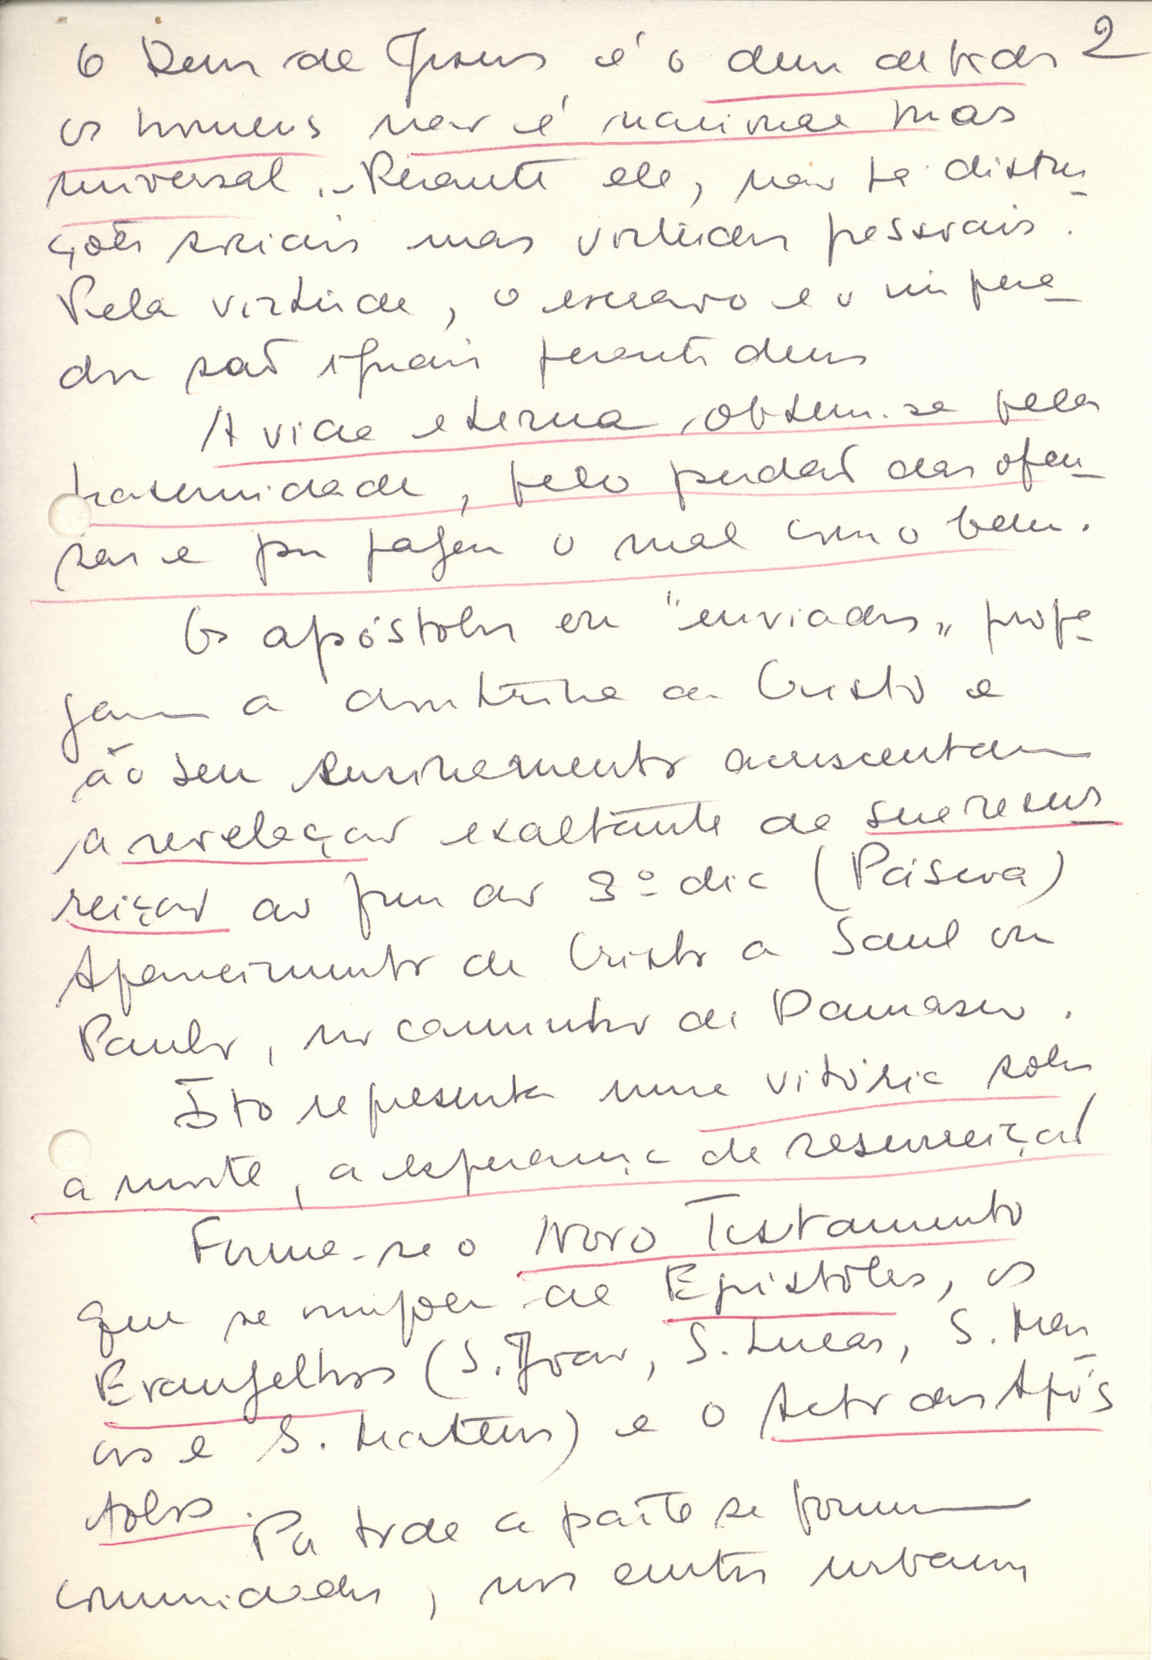 2
O Deus de Jesus é o deus de todos
os homens não é nacional mas
universal. - Perante ele, não há distin_
ções sociais mas virtudes pessoais.
Pela virtude, o escravo e o impera_
dor são iguais perante deus
A vida eterna obtem-se pela
fraternidade, pelo perdão das ofen_
sas e por pagar o mal com o bem.
Os apóstolos ou "enviados" propa_
gam a doutrina de Cristo e
ao seu ensinamento acrescentam
a revelação exaltante da sua ressur_
reição ao fim do 3º dia (Páscoa)
Aparecimento de Cristo a Saul ou
Paulo, no caminho de Damasco.
Isto representa uma vitória sobre
a morte, a esperança de ressurreição
Forma-se o Novo Testamento
que se compõe de Epístolas, os
Evangelhos (S. João, S. Lucas, S. Mar_
cos e S. Mateus) e o Acto dos Após
tolos.
Por toda a parte se formam
comunidades, nos centros urbanos